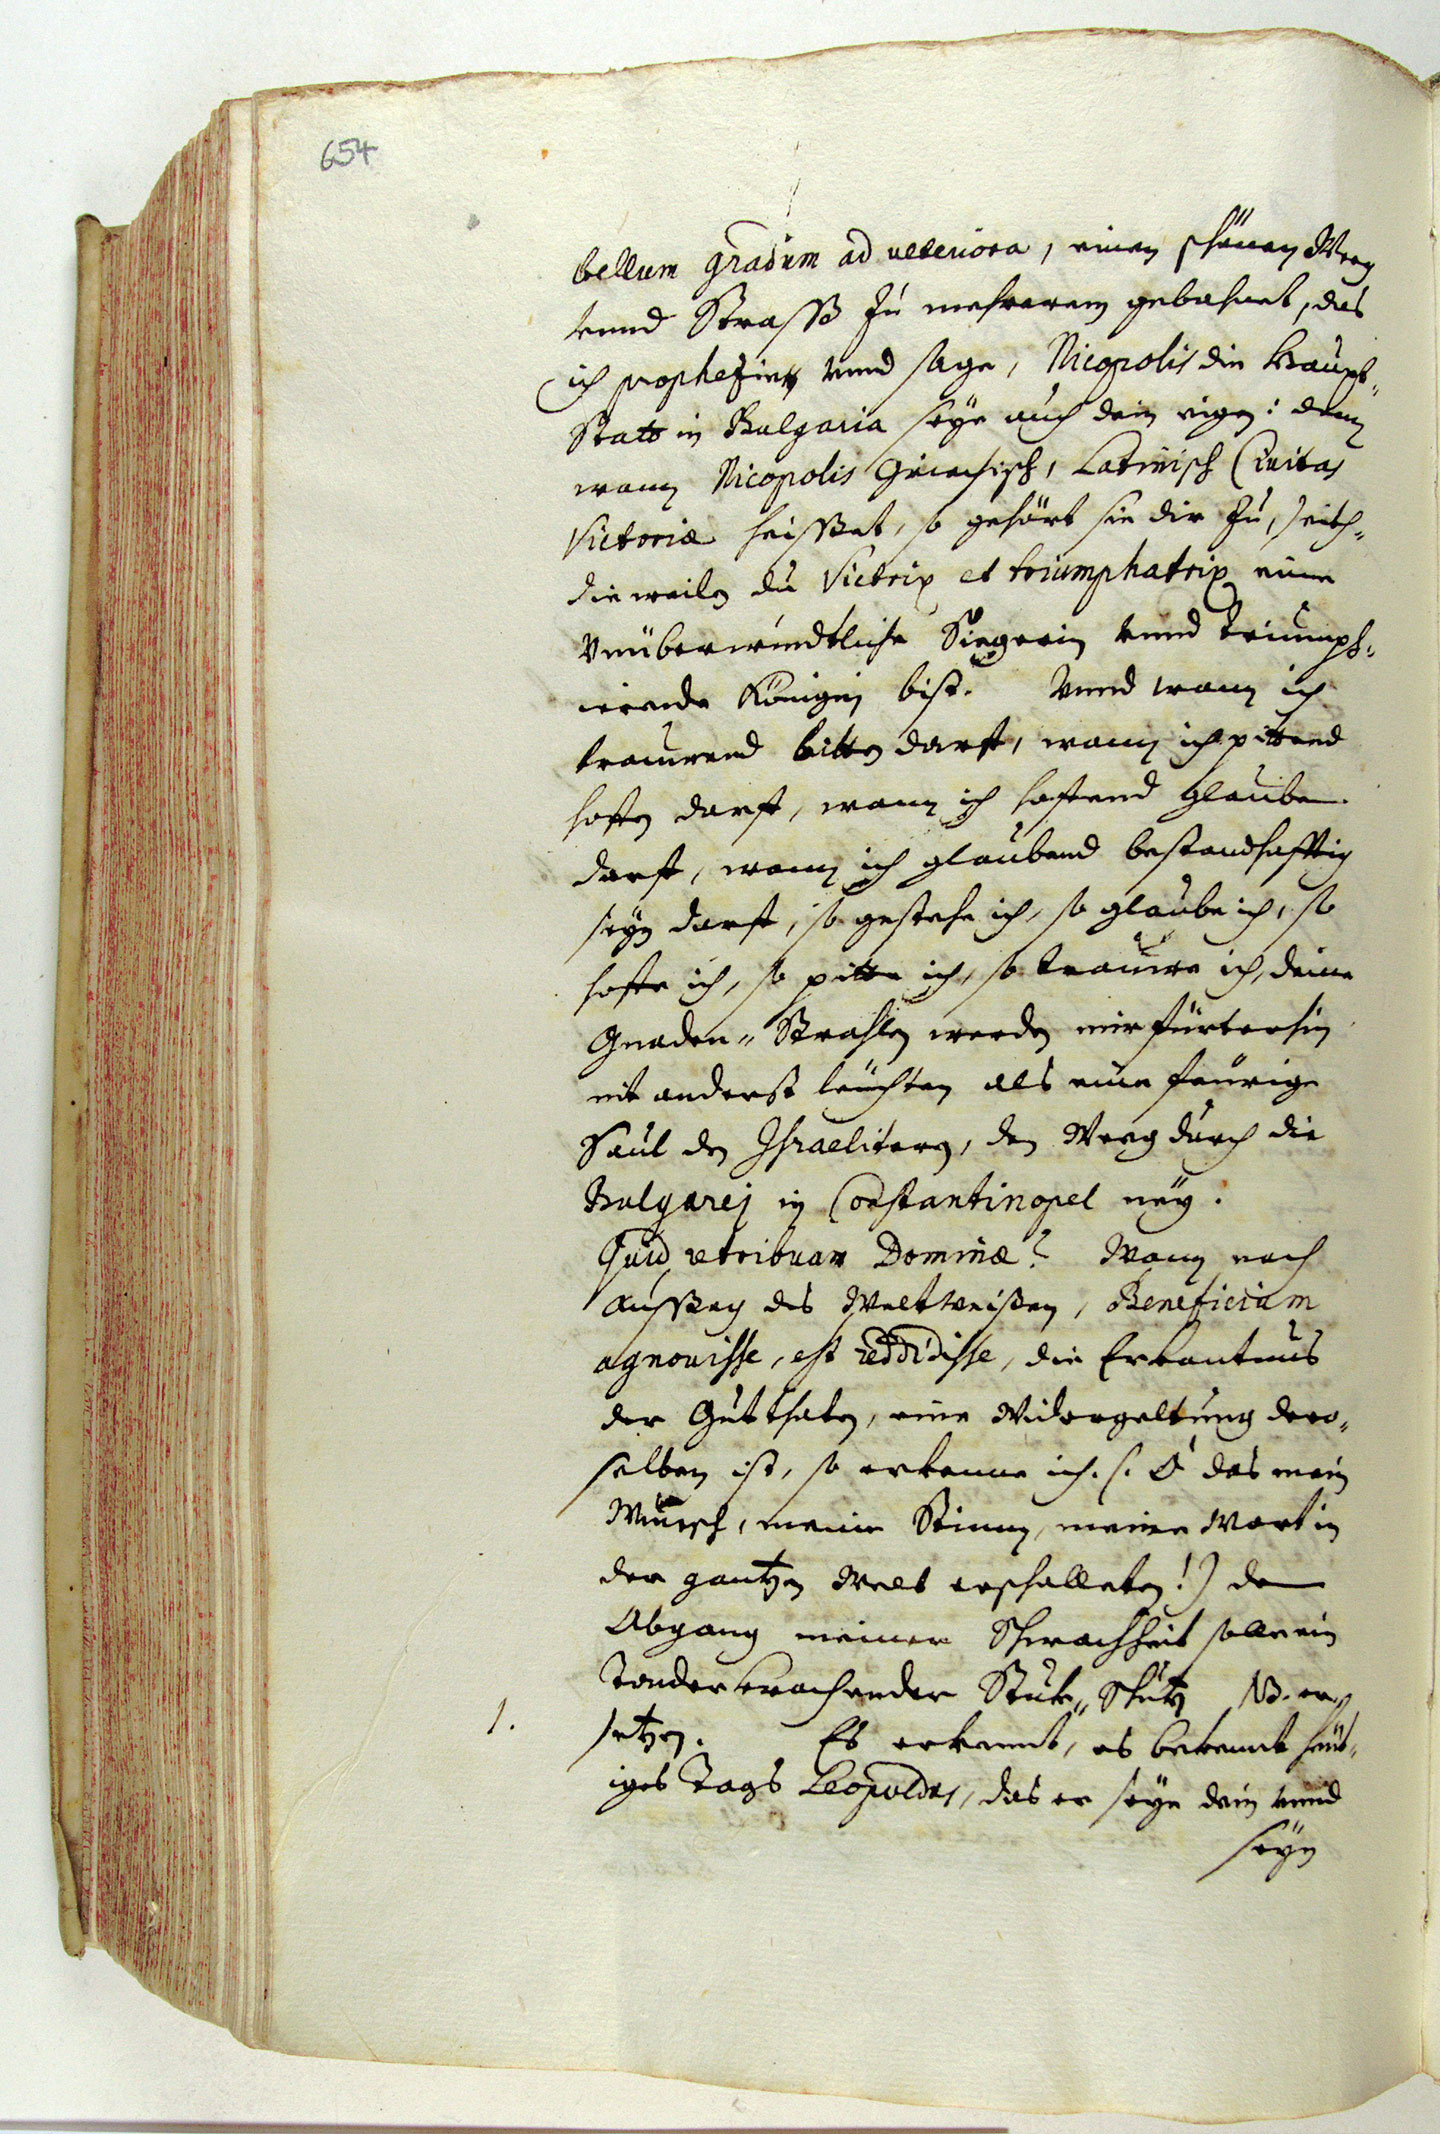 654
bellum gradum ad ulteriora, einen schönen Weeg
vnnd Strasß zu mehrerem gebahnet, das
ich prophezeie vnnd sage, Nicopolis die Haupt-
Statt in Bulgaria seye auch dein eigen: dann
wann Nicopolis Griechisch, Lateinisch Civitas
Victoriæ heisßet, so gehört sie dir zu, seith-
dieweilen du Victrix et triumphatrix eine
Vnüberwindtliche Siegerin vnnd triumph-
ierende Königin bist. Vnnd wann ich
traurend bitten darff, wann ich pittend
hoffen darff, wann ich hoffend glauben
darff, wann ich glaubend bestandhafftig
seyn darff, so gestehe ich, so glaube ich, so
hoffe ich, so pitte ich, so traure ich, deine
Gnaden-Strahlen werden mir fürterhin
nit anderst leüchten als eine feürige
Saul den Israelitern, den Weeg durch die
Bulgarej in Constantinopel neÿ.
Quid retribuam Dominæ? Wann nach
Ausßag des Weltweisen, Beneficium
agnovisse, est reddidisse, die Erkantnus
der Gutthaten, eine Widergeltung dero-
selben ist, so erkenne ich. (: O das mein
Wunsch, meine Stimm, meine Wort in
der gantzen Welt erschalleten!) den
Abgang meiner Schwachheit solle ein
Donder krachender Stuk-Schutz NB. er-
1. setzen. Es erkennt, es bekennt heüt-
iges Tags Leopoldus, das er seye dein vnnd
seyn